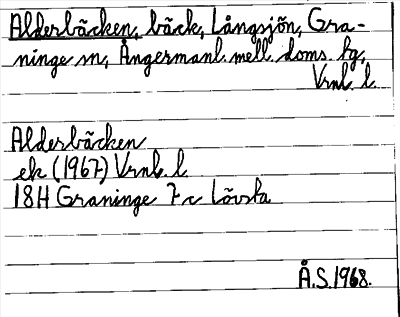 Alderbäcken, bäck, Långsjön, Gra-
ninge sn, Ångermanl. mell. doms. hg,
Vrnl. l.
Alderbäcken
ek (1967) Vrnl. l
18H Graninge 7c Lövsta
Å.S. 1968.